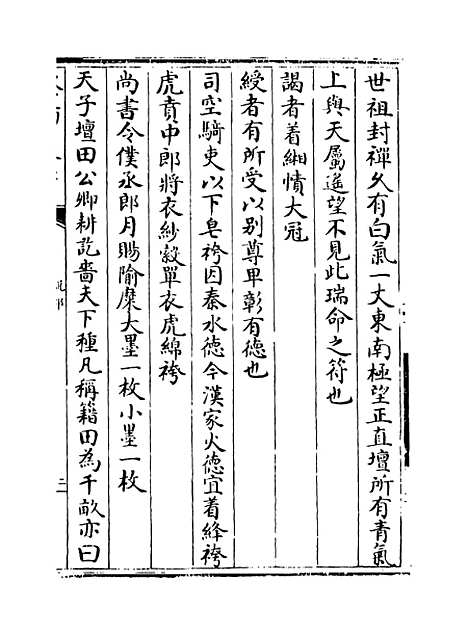 世祖封禪久有白氣一丈東南極望正直壇所有青氣
上與天屬遙望不見此瑞命之符也
謁者着緗幘大冠
綬者有所受以别尊卑彰有德也
司空騎吏以下皂袴因秦水德今漢家火德宜着絳袴
虎賁中郎將衣紗縠單衣虎綿袴
尚書令僕丞郎月賜隃糜大墨一枚小墨一枚
天子壇田公卿耕訖嗇夫下種凡稱籍田為千畝亦曰
説郛
三